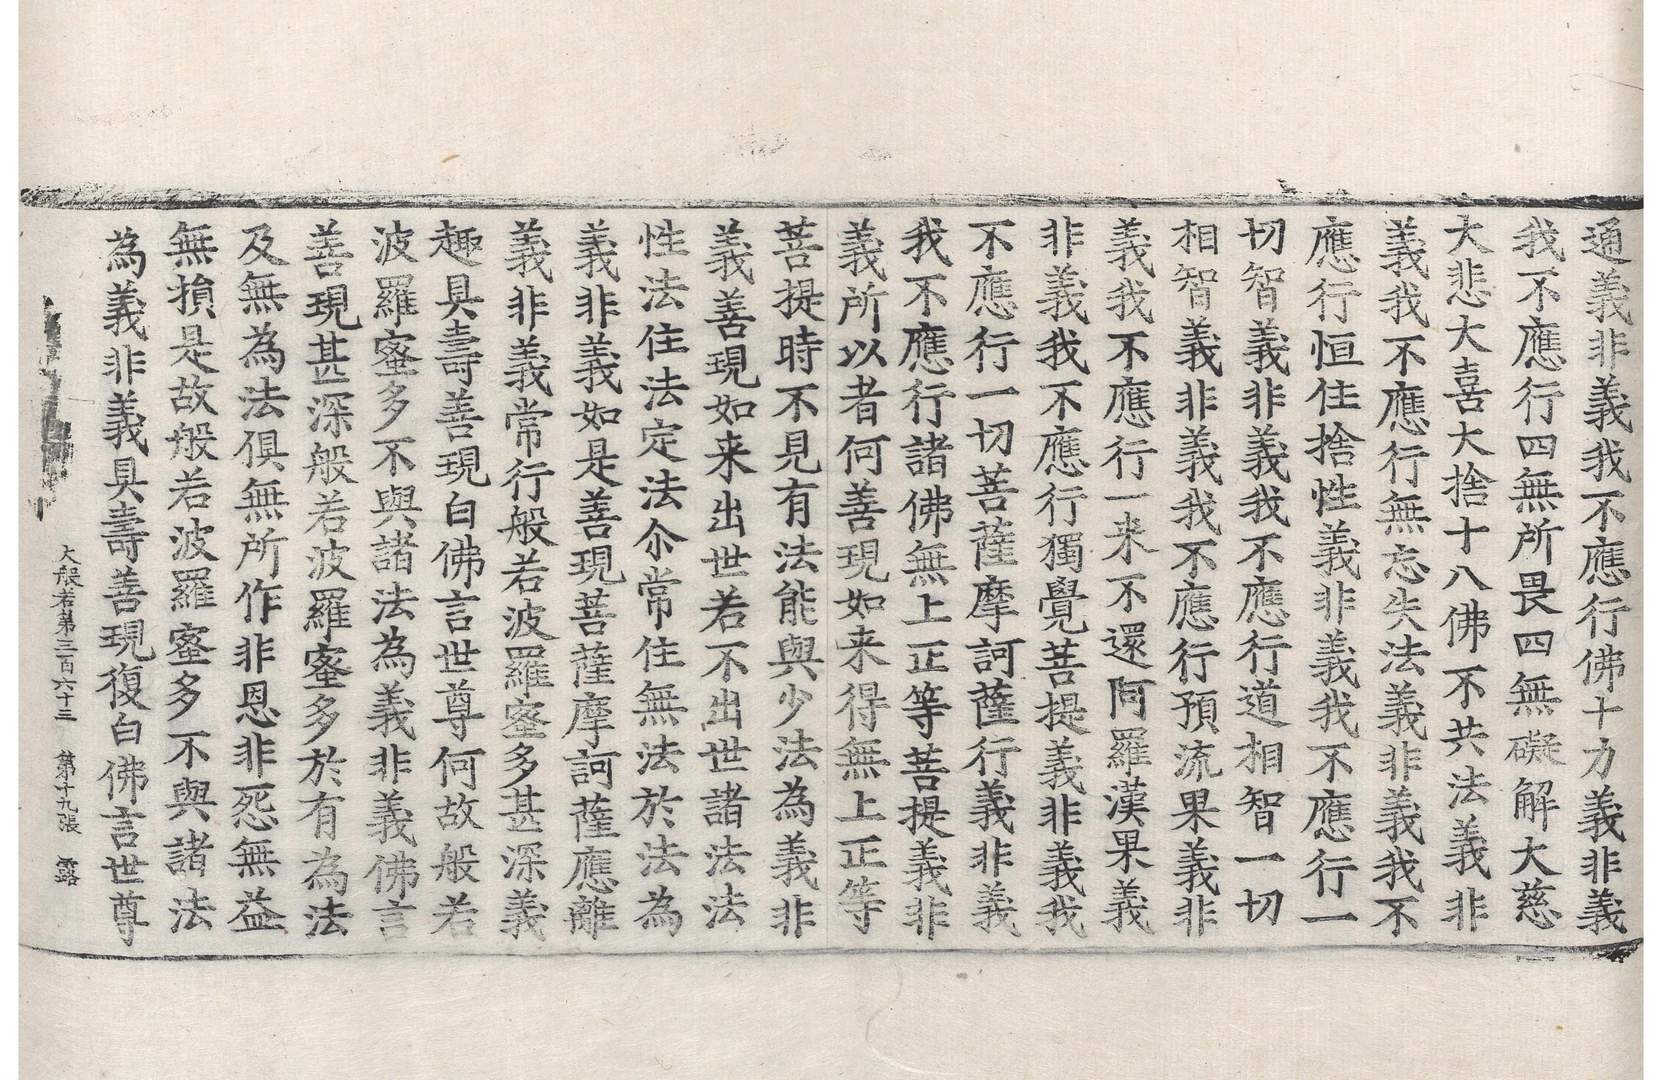 通義非義我不應行佛十力義非義
我不應行四無所畏四無礙解大慈
大悲大喜大捨十八佛不共法義非
義我不應行無忘失法義非義我不
應行恒住捨性義非義我不應行一
切智義非義我不應行道相智一切
相智義非義我不應行預流果義非
義我不應行一来不還阿羅漢果義
非義我不應行獨覺菩提義非義我
不應行一切菩薩摩訶薩行義非義
我不應行諸佛無上正等菩提義非
義所以者何善現如来得無上正等
菩提時不見有法能與少法為義非
義善現如来出世若不出世諸法法
性法住法定法尒常住無法於法為
義非義如是善現菩薩摩訶薩應離
義非義常行般若波羅蜜多甚深義
趣具壽善現白佛言世尊何故般若
波羅蜜多不與諸法為義非義佛言
善現甚深般若波羅蜜多於有為法
及無為法俱無所作非恩非怨無益
無損是故般若波羅蜜多不與諸法
為義非義具壽善現復白佛言世尊
大般若第三百六十三　第十九張　露